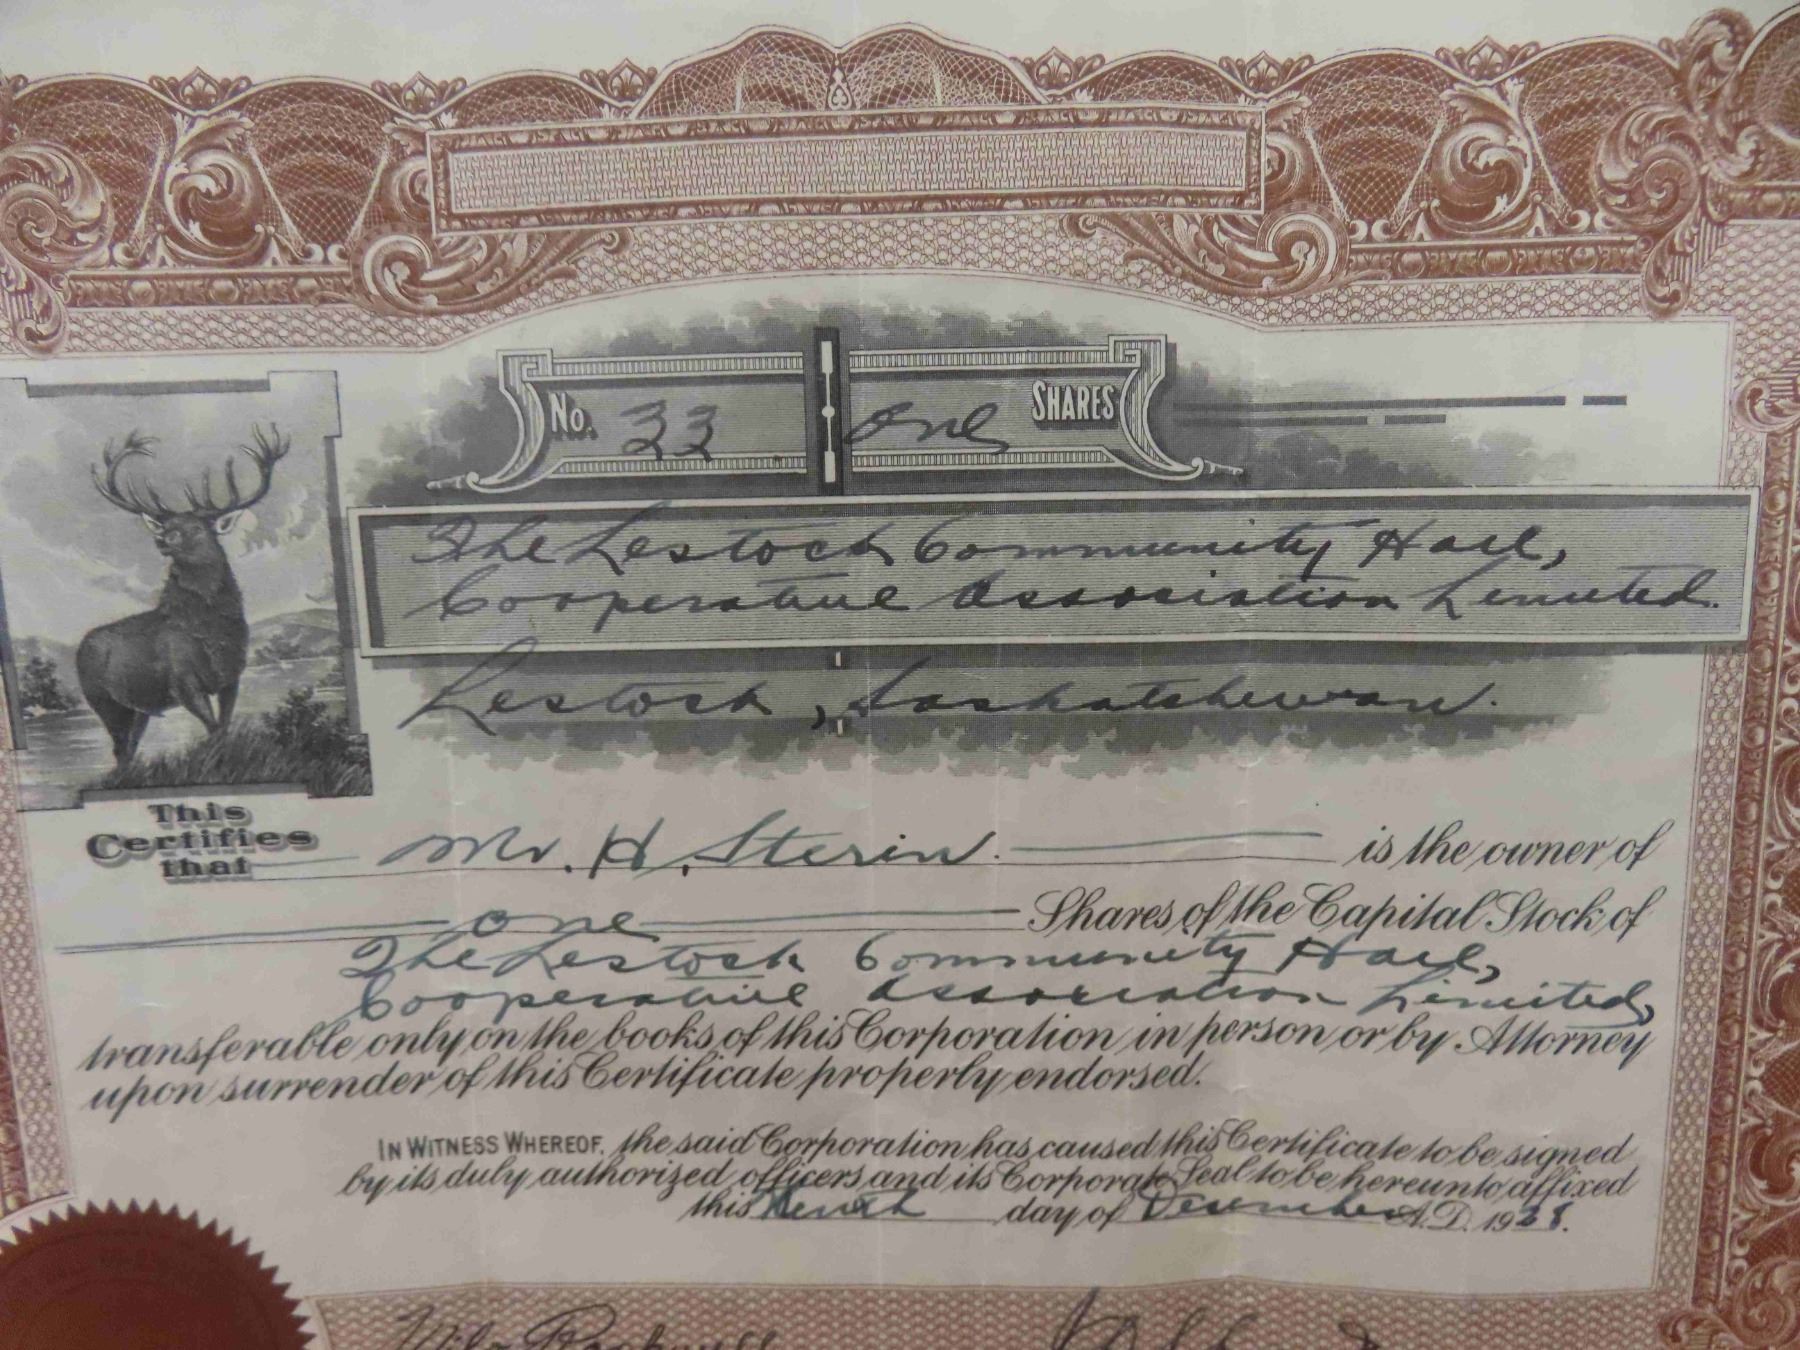 No. 33 One SHARES
The Lestock Community Hall,
Cooperative Association Limited.
Lestock, Saskatchewan.
This
Certifies
that Mr. H. Sterin. is the owner of
one Shares of the Capital Stock of
The Lestock Community Hall,
Cooperative Association Limited,
transferable only on the books of this Corporation in person or by Attorney
upon surrender of this Certificate properly endorsed.
IN WITNESS WHEREOF, the said Corporation has caused this Certificate to be signed
by its duly authorized officers and its Corporate Seal to be hereunto affixed
this day of December A.D. 1928.